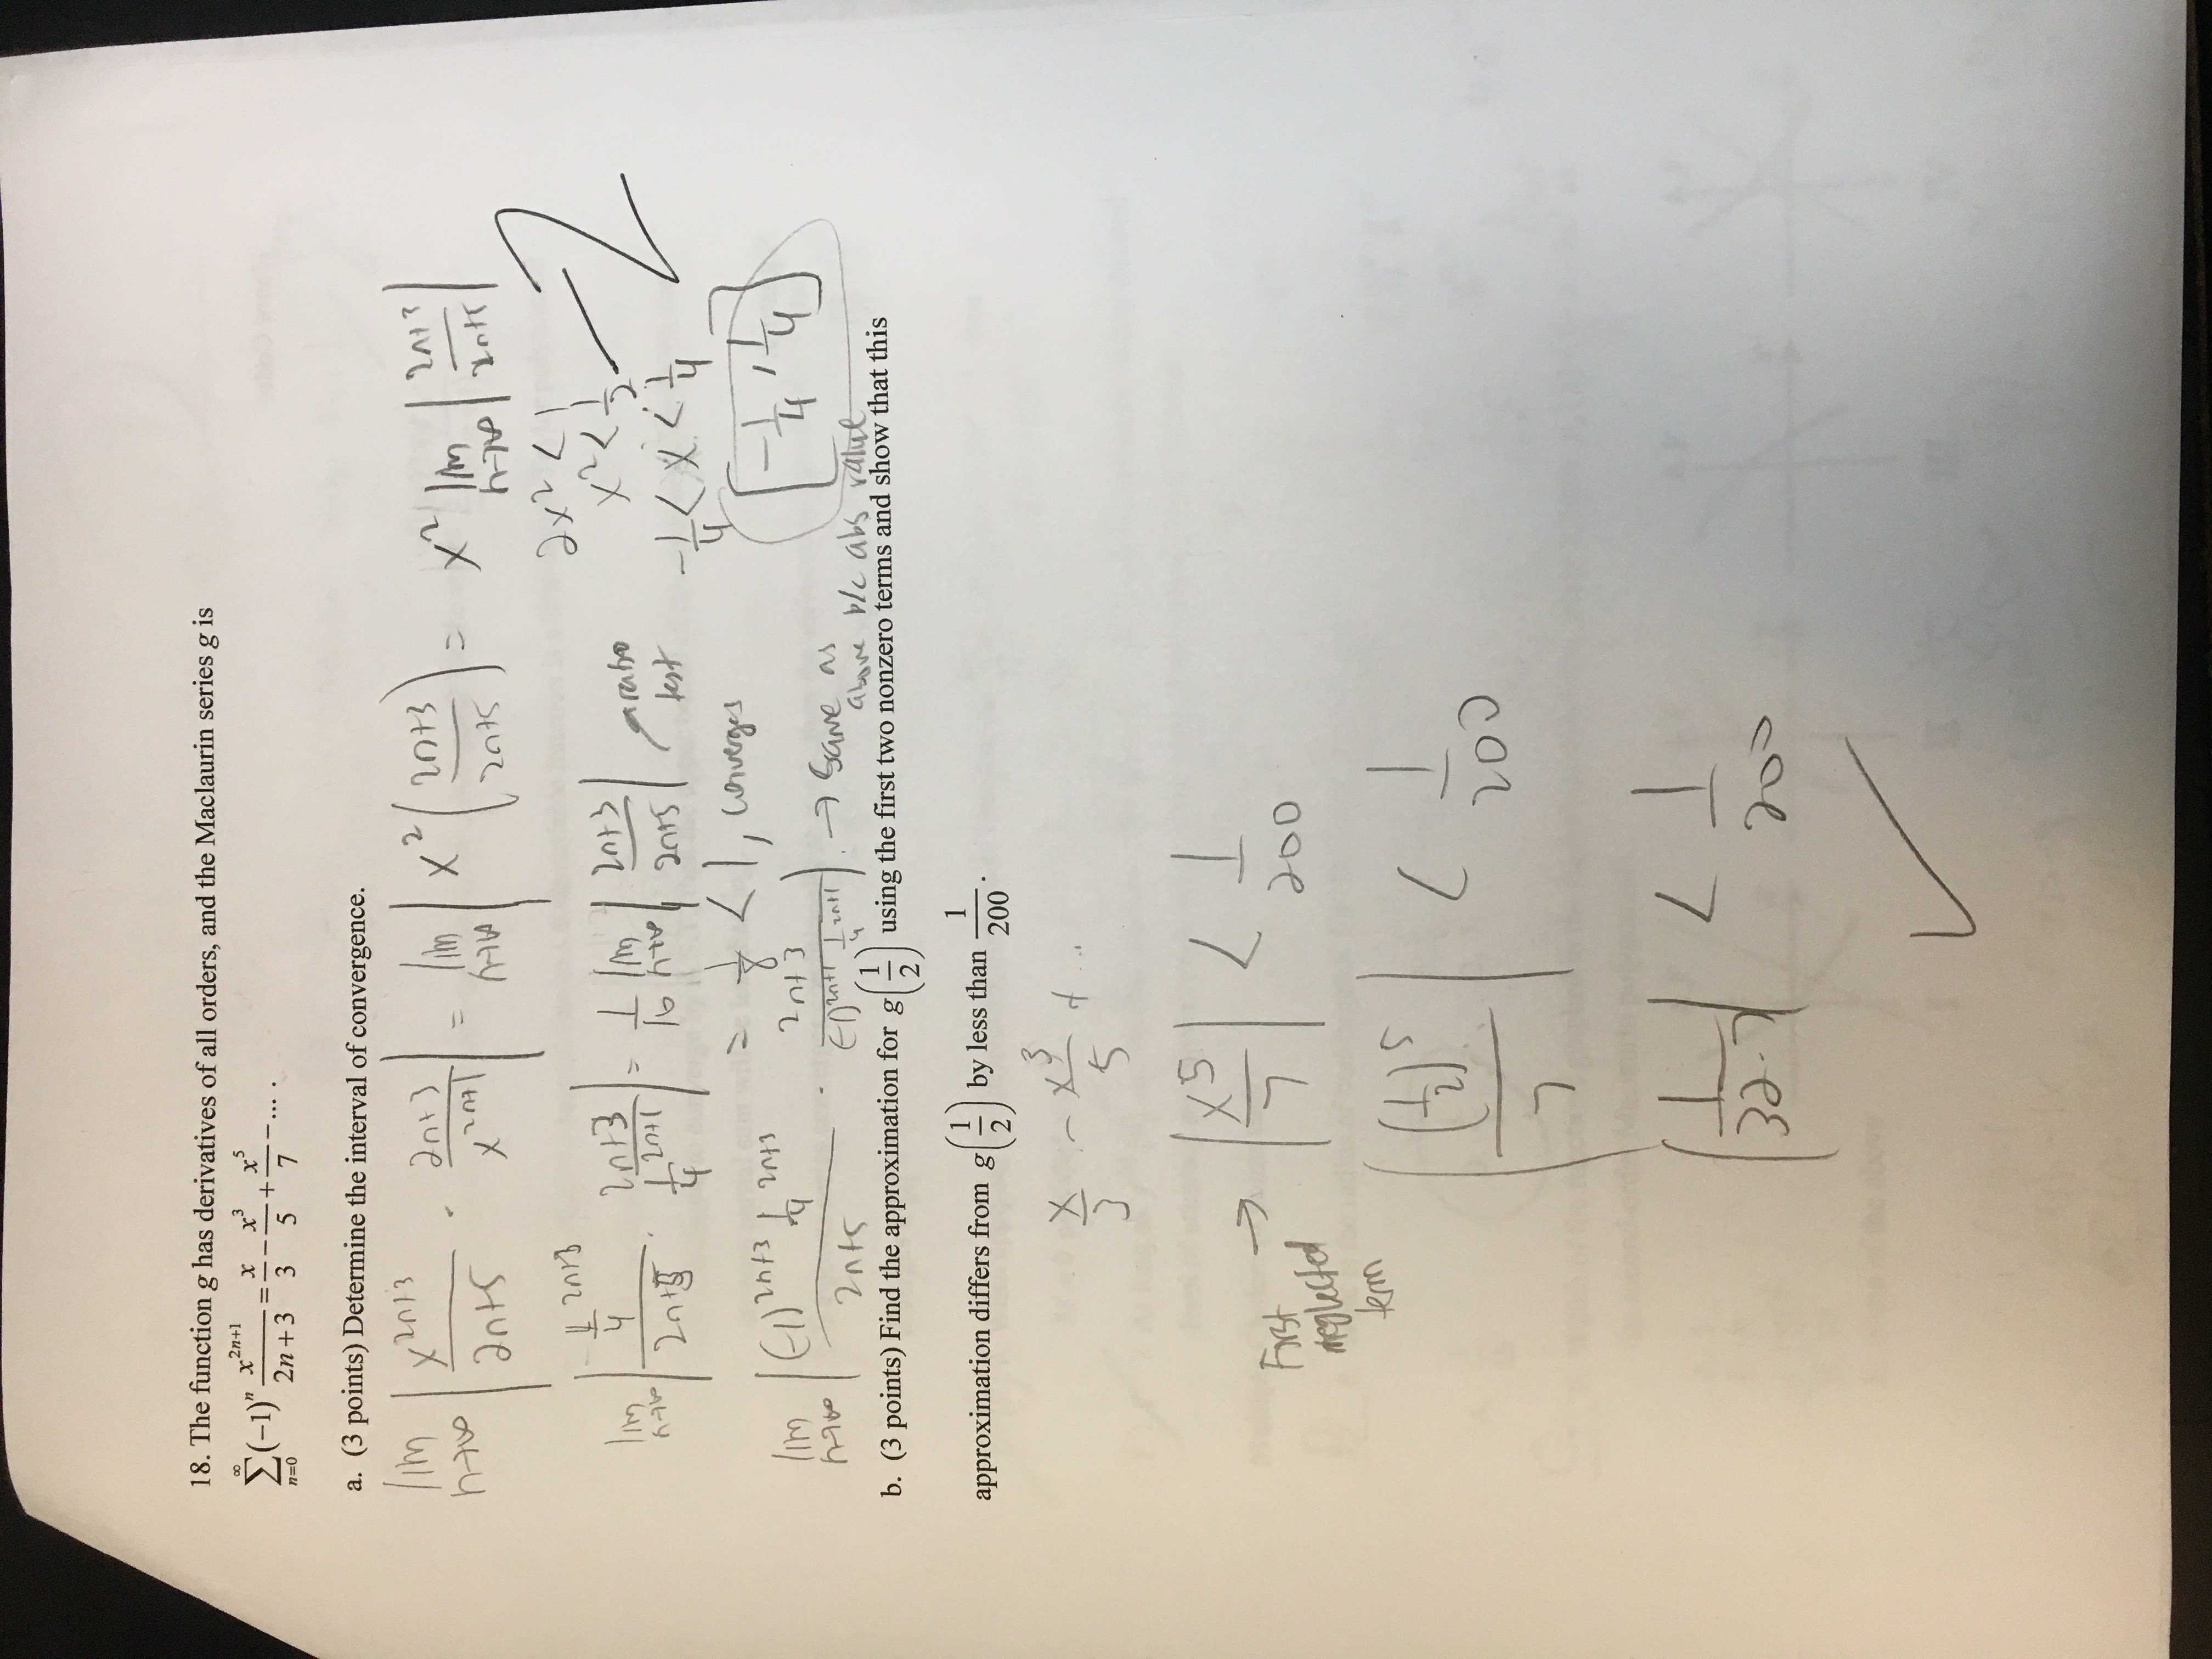 18. The function g has derivatives of all orders, and the Maclaurin series g is
∞∑n=0 (−1)^n x^(2n+1)/(2n+3) = x/3 − x^3/5 + x^5/7 − ... .
a. (3 points) Determine the interval of convergence.
lim n→∞ | x^(2n+3)/(2n+5) · (2n+3)/x^(2n+1) | = lim n→∞ | x^2 ((2n+3)/(2n+5)) = x^2 lim n→∞ | (2n+3)/(2n+5) |
2x^2 < 1
x^2 < 1/2
lim n→∞ | (1/4)^(2n+3)/(2n+5) · (2n+3)/(1/4)^(2n+1) | = 1/16 lim n→∞ | (2n+3)/(2n+5) | ratio test
-1/4 < x < 1/4
= 1/8 < 1, converges
[-1/4, 1/4]
lim n→∞ | (-1)^(2n+3) 1/4^(2n+3)/(2n+5) · (2n+3)/((-1)^(2n+1) 1/4^(2n+1)) | → Same as
above b/c abs value
b. (3 points) Find the approximation for g(1/2) using the first two nonzero terms and show that this
approximation differs from g(1/2) by less than 1/200 .
x/3 - x^3/5 + ...
First neglected term → | x^5/7 | < 1/200
| (1/2)^5/7 | < 1/200
| 1/(32·7) | < 1/200